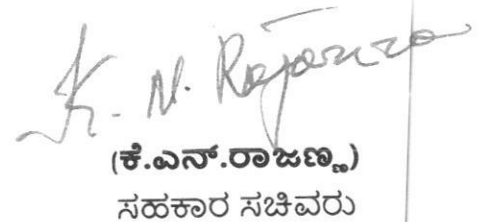 K. N. Rajanna
(ಕೆ.ಎನ್.ರಾಜಣ್ಣ)
ಸಹಕಾರ ಸಚಿವರು